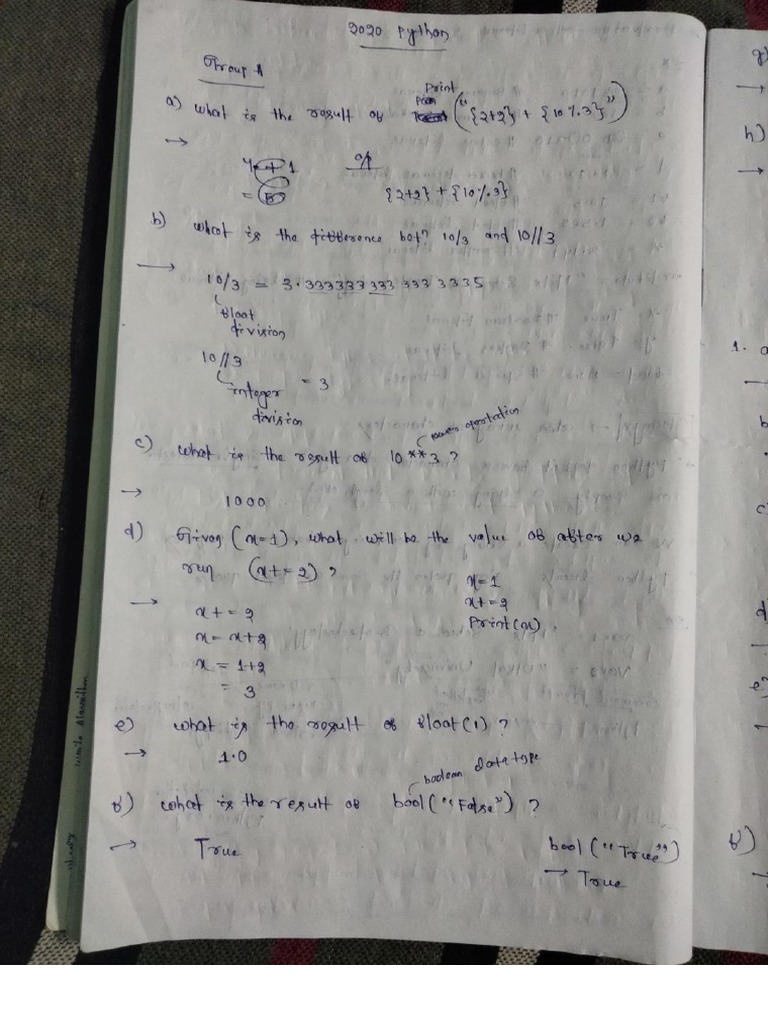 2020 Python
Group A
a) What is the result of Print ("{2+2} + {10 % 3}")
→
4 + 1 o/p
= 5 {2+2} + {10%3}
b) What is the difference betn 10/3 and 10//3
→
10/3 = 3.3333333333333335
float
division
10//3
= 3
integer
division
power operation
c) What is the result of 10**3 ?
→ 1000
d) Given (x=1), what will be the value of after we
run (x+=2) ?
→ x+=2
x = x+2
x = 1+2
= 3
x=1
x+=2
Print(x)
e) What is the result of float(1) ?
→ 1.0
boolean data type
f) What is the result of bool("False") ?
→ True
bool ("True")
→ True
g)
→
h)
→
1. a
b
c
d
e
f)